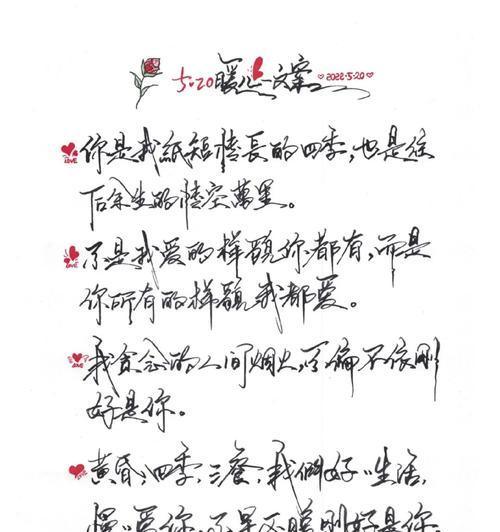 5.20暖心文案 2022.5.20
你是我紙短情長的四季,也是往
LOVE
后余生的晴空萬里。
不是我爱的样貌你都有,而是
LOVE
你所有的样貌我都爱。
我贪念的人间烟火,不偏不依刚
LOVE
好是你。
黄昏,四季,三餐,我們好好生活,
LOVE
慢慢爱你,不早不晚刚好是你